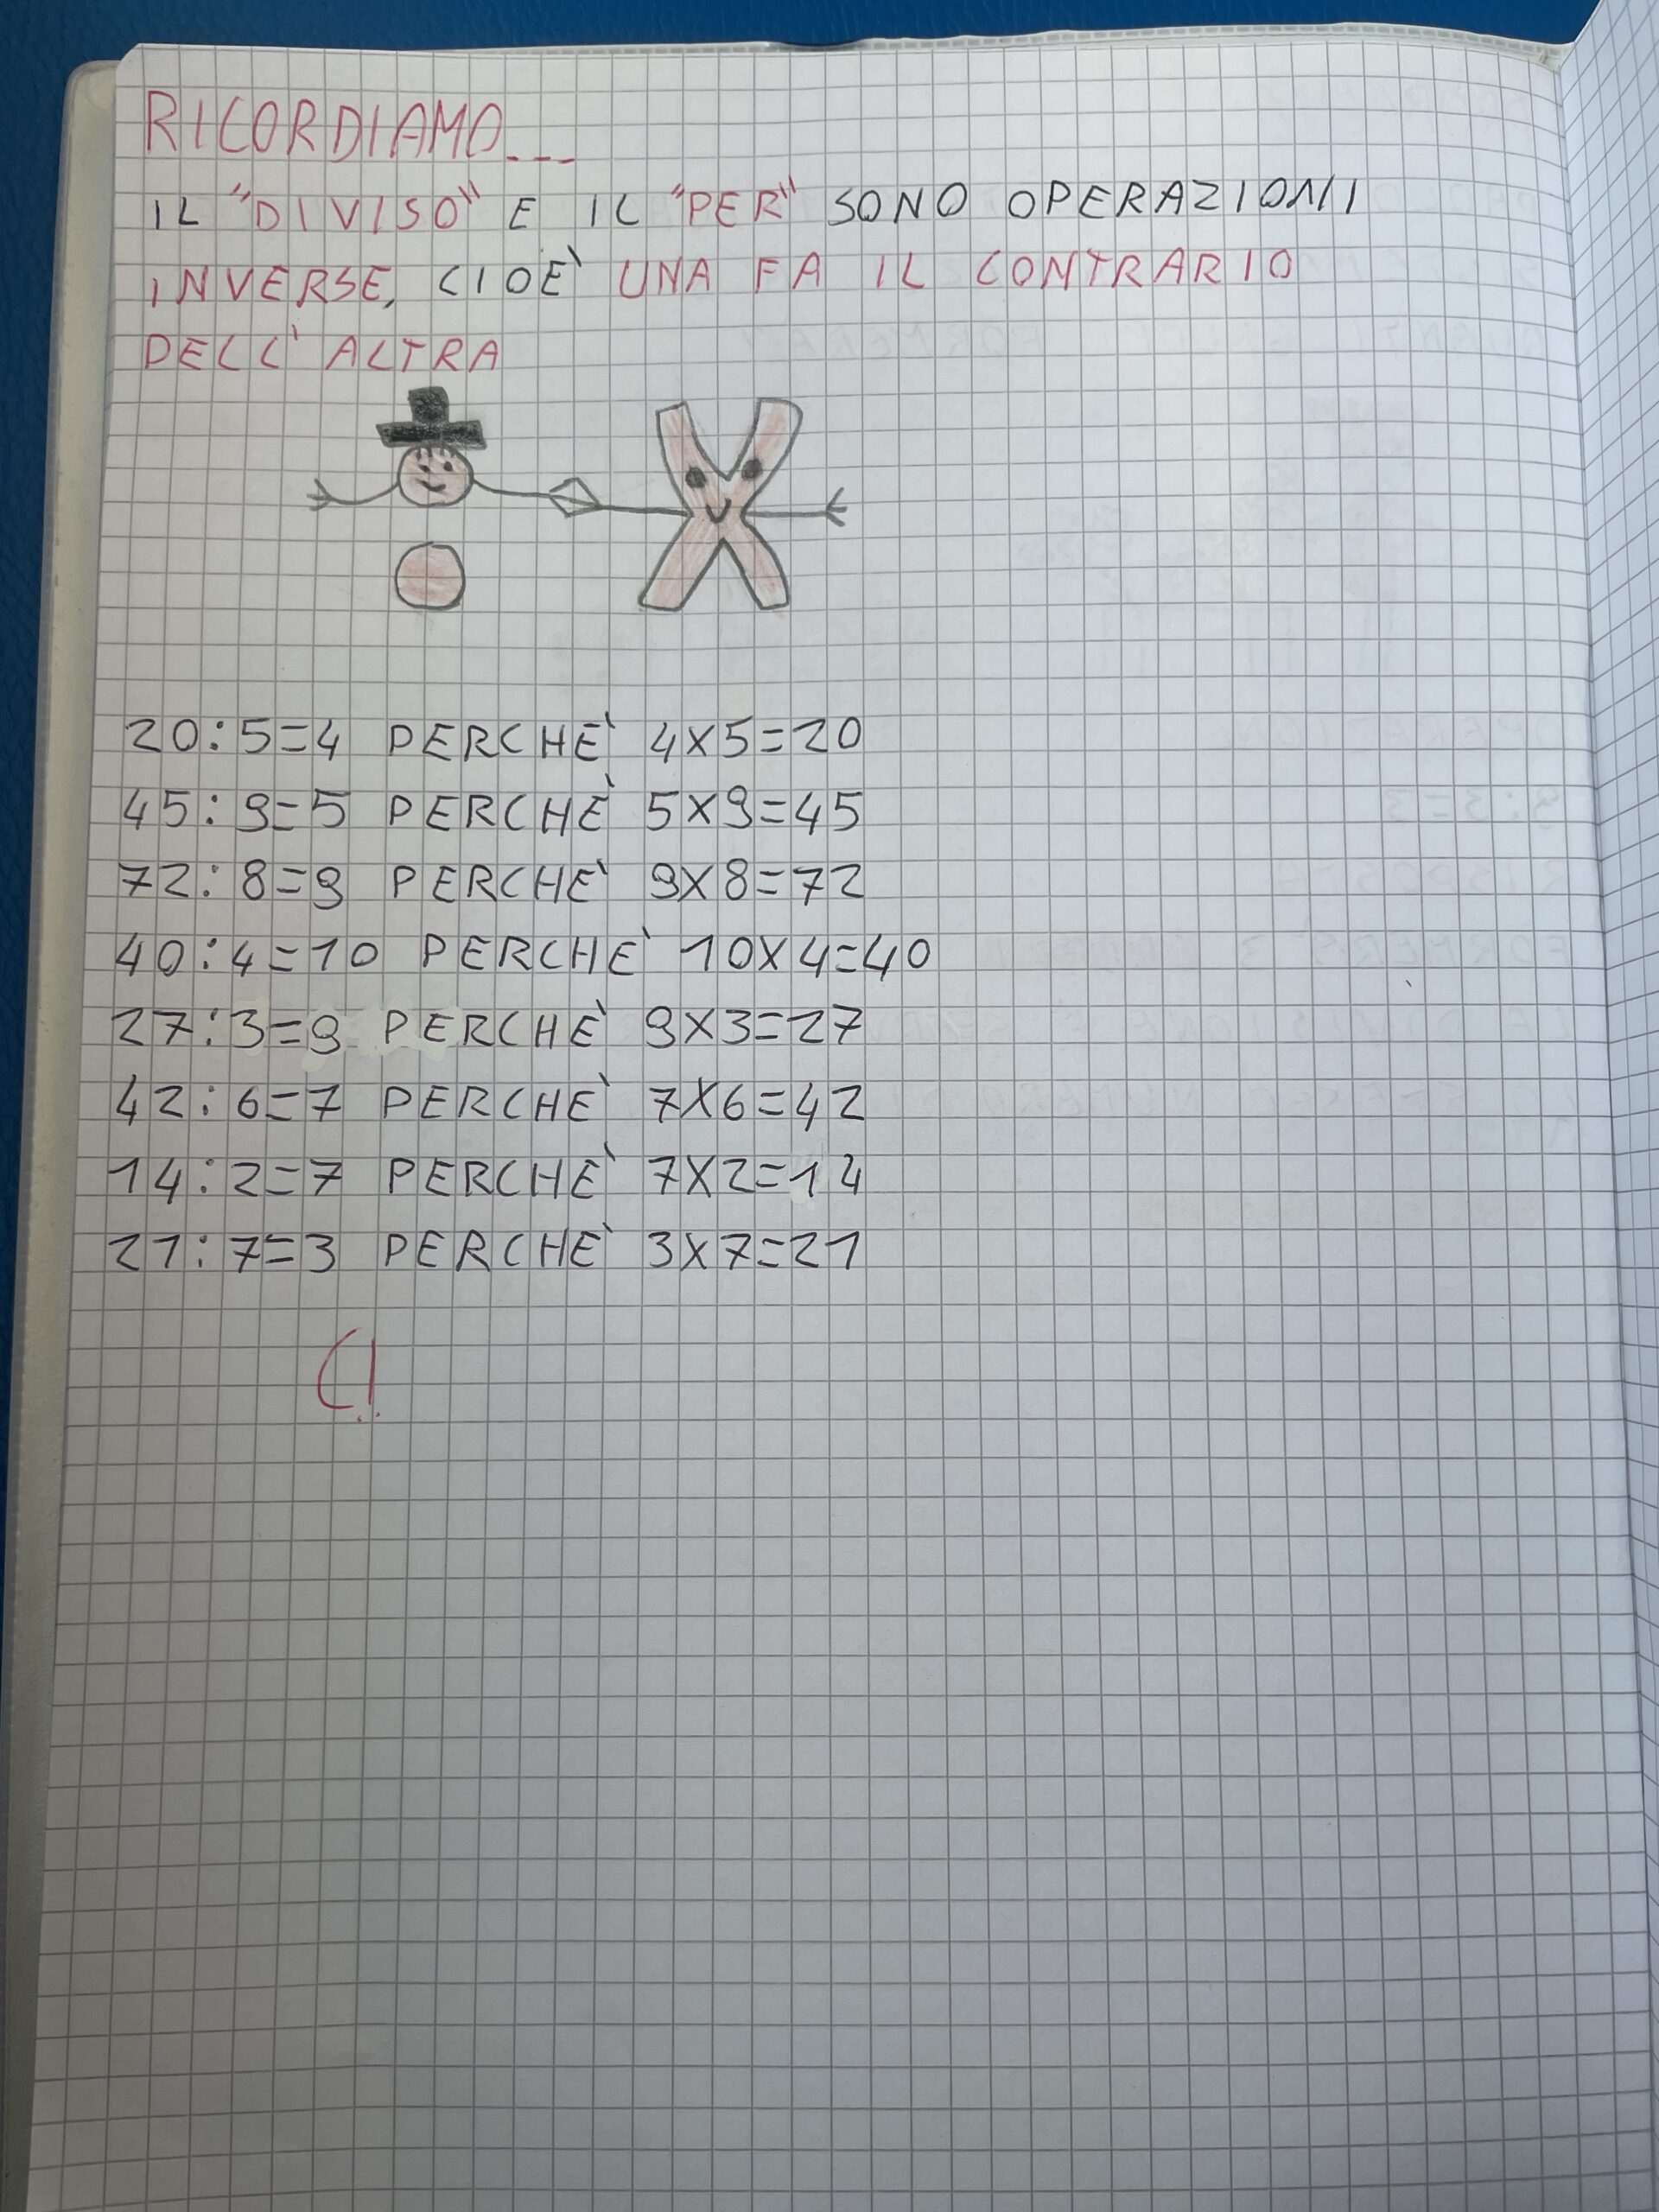 RICORDIAMO...
IL "DIVISO" E IL "PER" SONO OPERAZIONI
INVERSE, CIOÈ UNA FA IL CONTRARIO
DELL'ALTRA
20:5=4 PERCHÈ 4X5=20
45:9=5 PERCHÈ 5X9=45
72:8=9 PERCHÈ 9X8=72
40:4=10 PERCHÈ 10X4=40
27:3=9 PERCHÈ 9X3=27
42:6=7 PERCHÈ 7X6=42
14:2=7 PERCHÈ 7X2=14
21:7=3 PERCHÈ 3X7=21